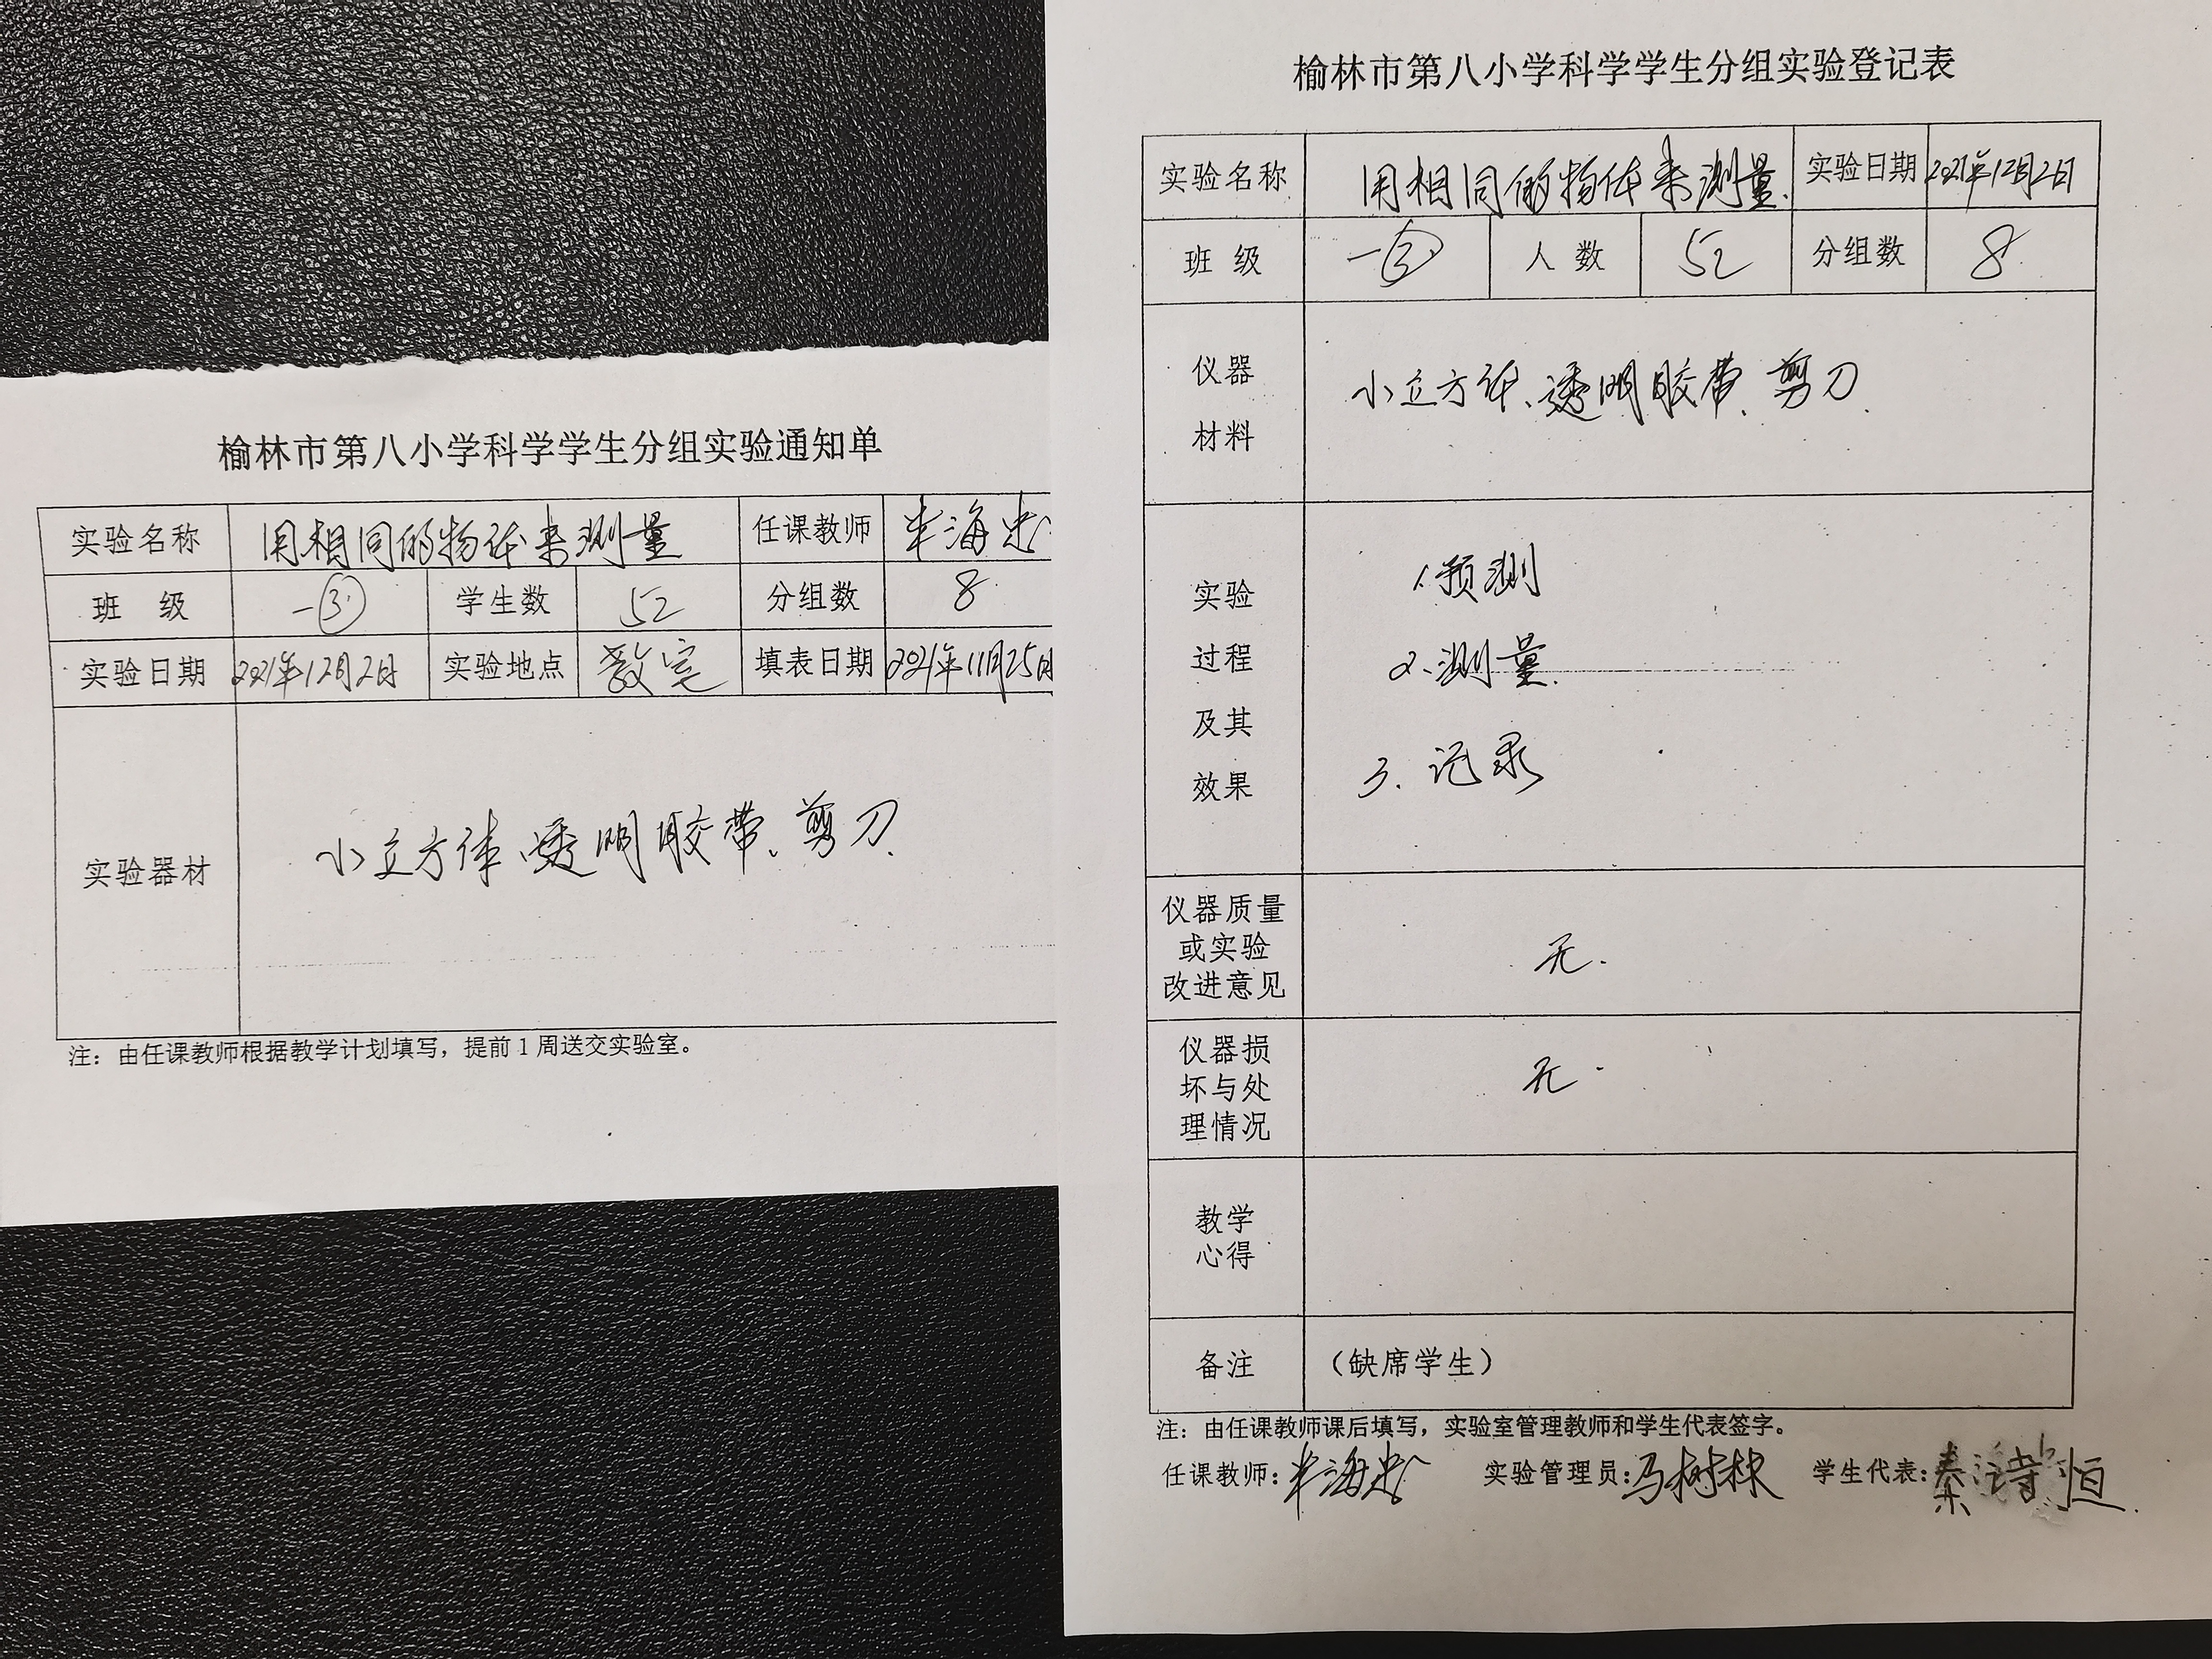 榆林市第八小学科学学生分组实验通知单
实验名称 用相同的物体来测量 任课教师 海忠
班 级 一③ 学生数 52 分组数 8
实验日期 2021年12月2日 实验地点 教室 填表日期 2021年11月25日
实验器材 小立方体、透明胶带、剪刀
注：由任课教师根据教学计划填写，提前1周送交实验室。
榆林市第八小学科学学生分组实验登记表
实验名称 用相同的物体来测量. 实验日期 2021年12月2日
班 级 一③ 人 数 52 分组数 8
仪器
材料
小立方体、透明胶带、剪刀
实验
过程
及其
效果
1.预测
2.测量
3.记录
仪器质量
或实验
改进意见
无.
仪器损
坏与处
理情况
无.
教学
心得
备注 （缺席学生）
注：由任课教师课后填写，实验室管理教师和学生代表签字。
任课教师：海忠 实验管理员：马树林 学生代表：秦诗恒